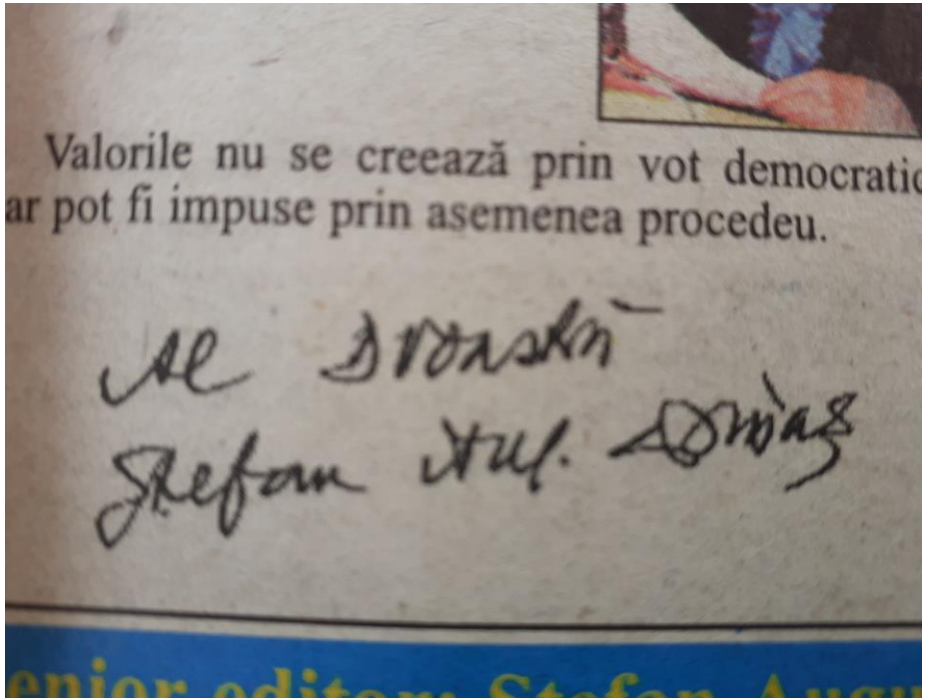 Valorile nu se creează prin vot democratic
ar pot fi impuse prin asemenea procedeu.
Al
Ștefan Aug. Doinaș
enior editor: Ștefan Augu